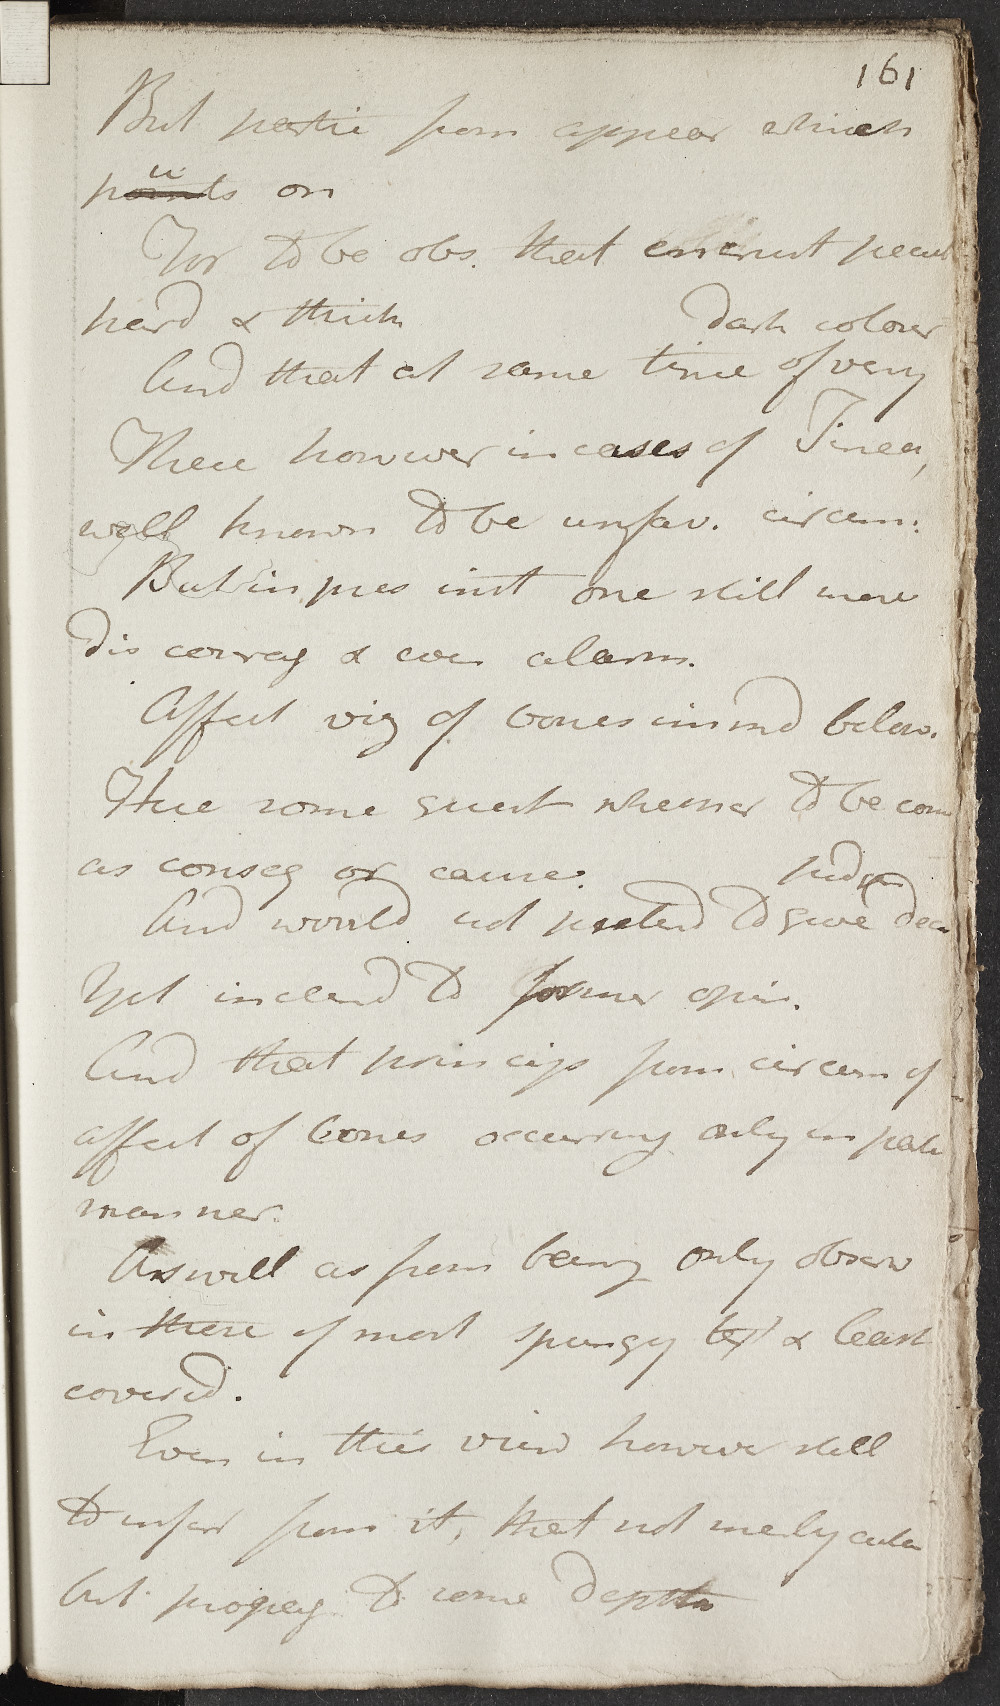 161
But partic from appear which
points u on
For to be obs. that encrust pecul
hard & thick dark colour
And that at same time of very
These however in cases of Tinea,
well known to be unfav. circum:
But in pres inst one still more
discourag & even alarm.
Affect viz of bones immed below.
Here some quest whether to be con
as conseq or cause. judg
And would not pretend to give dec
Yet inclend to former opin.
And that princip from circum of
affect of bones occurring only in part
manner.
As well as from being only observ
in these of most spungy text & least
covered.
Even in this view however still
to infer from it, that not merely cuta
but propag to some depth